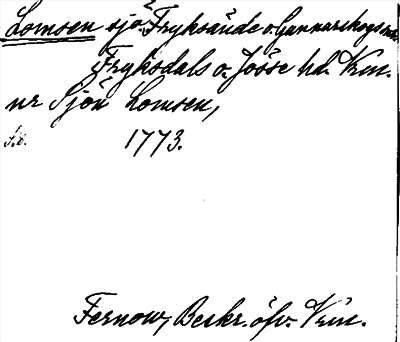 Lomsen sjö. Fryksände o. Gunnarskogs snr
Fryksdals o. Jösse hd. Vrm.
ur Sjön Lomsen,
1773.
Fernow, Beskr. öfv. Vrm.